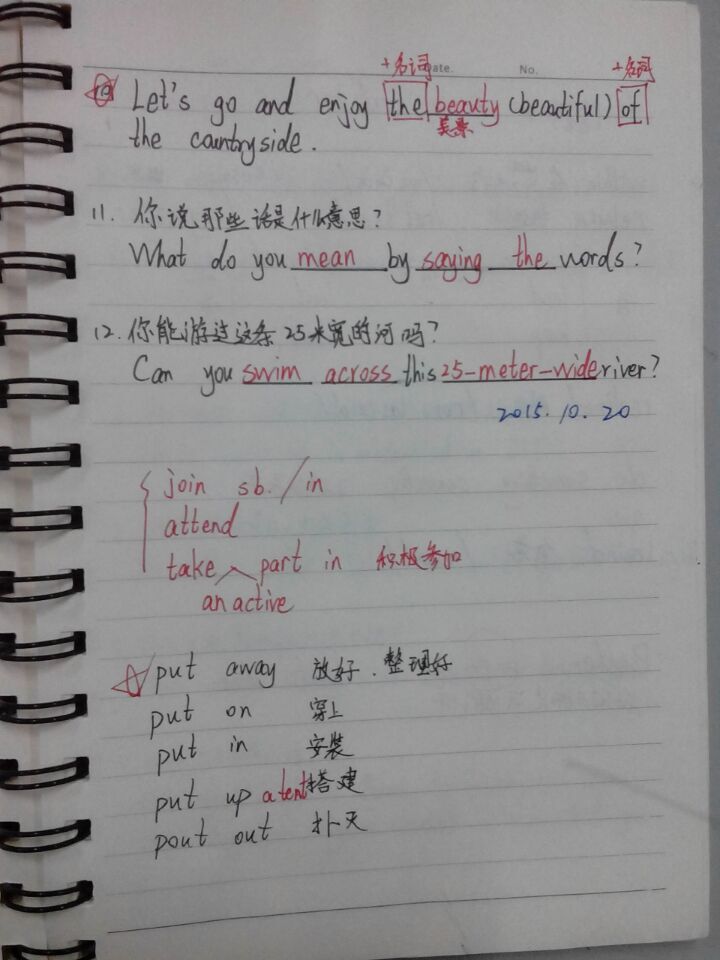 +名词 Date. No. +名词
10 Let's go and enjoy the beauty (beautiful) of
美景
the countryside.
11. 你说那些话是什么意思?
What do you mean by saying the words?
12. 你能游过这条25米宽的河吗?
Can you swim across this 25-meter-wide river?
2015. 10. 20
join sb. / in
attend
take part in 积极参加
an active
put away 放好、整理好
put on 穿上
put in 安装
put up a tent 搭建
pout out 扑灭